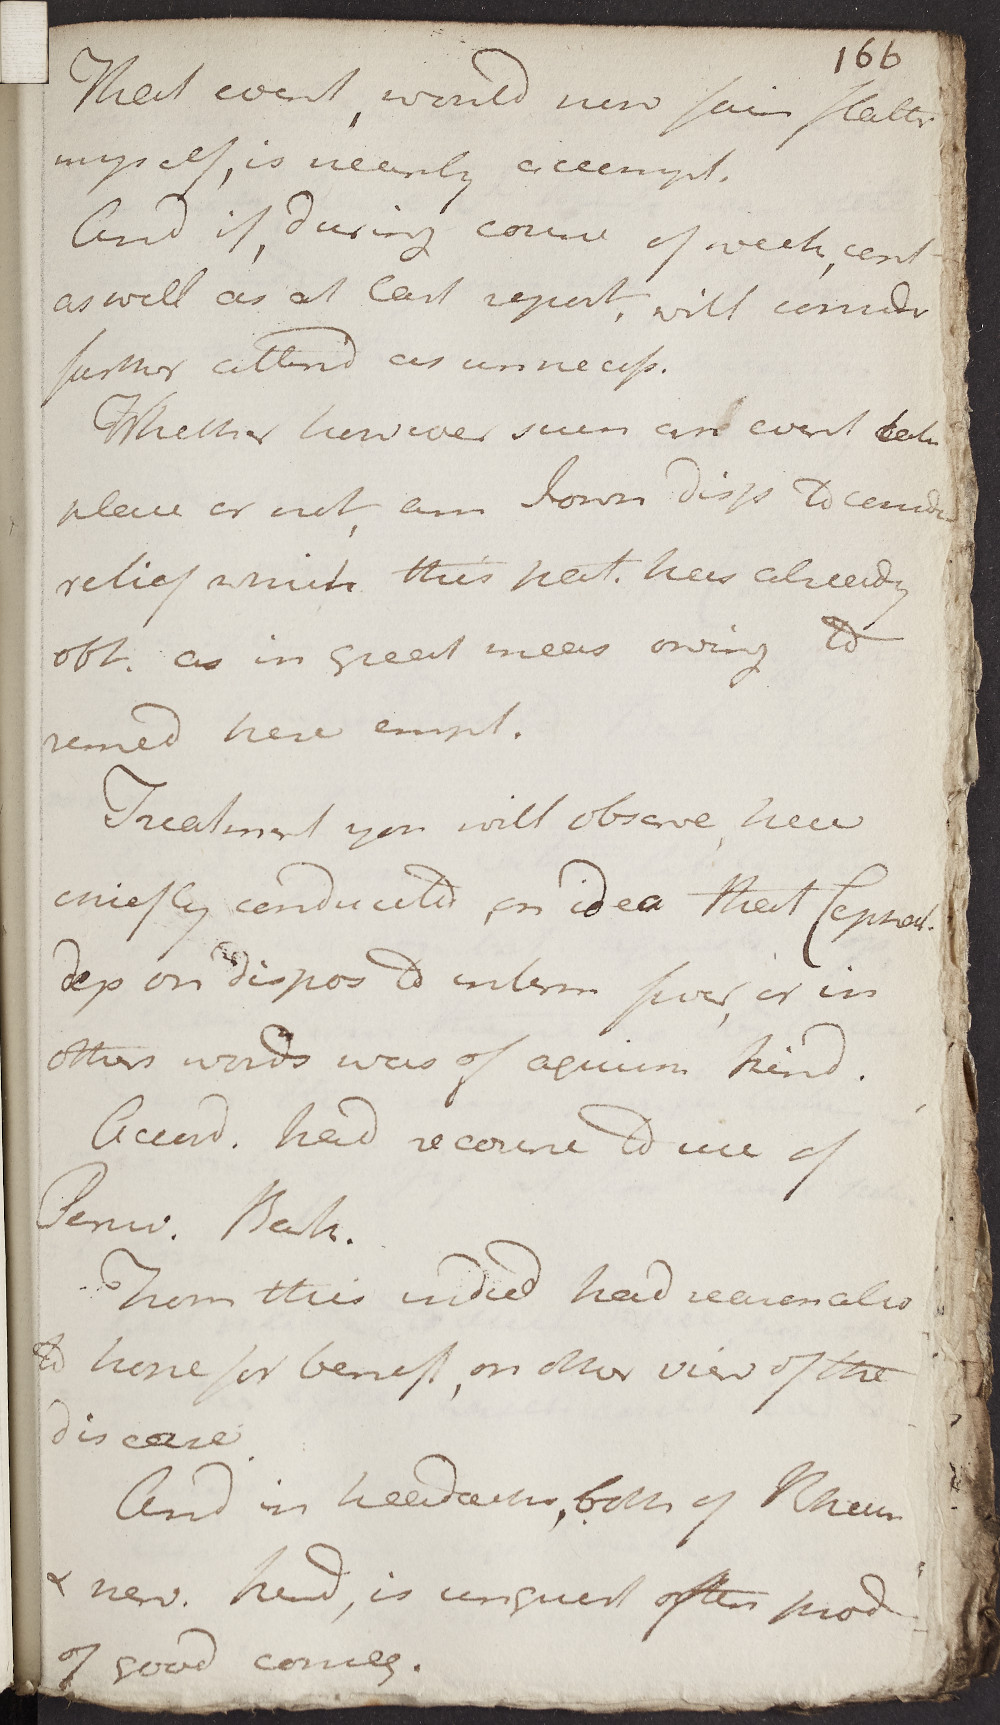 166
That event, would now fain flatter
myself, is nearly accompl.
And if, during course of week, cont
as well as at last report, will consider
further attend as unnecess.
Whether however such an event take
place or not, am I own disp to consider
relief which this pat. has already
obt. as in great meas owing to
remed here empl.
Treatment you will observe, here
chiefly conducted, on idea that Cephal.
dep on dispos to interm fever, or in
others words was of aguish kind.
Accord. had recourse to use of
Peruv. Bark.
From this indeed had reason also
to hope for benefit, on other view of the
disease
And in headachs, both of Rheum
& nerv. kind, is unquest often prod
of good conseq.